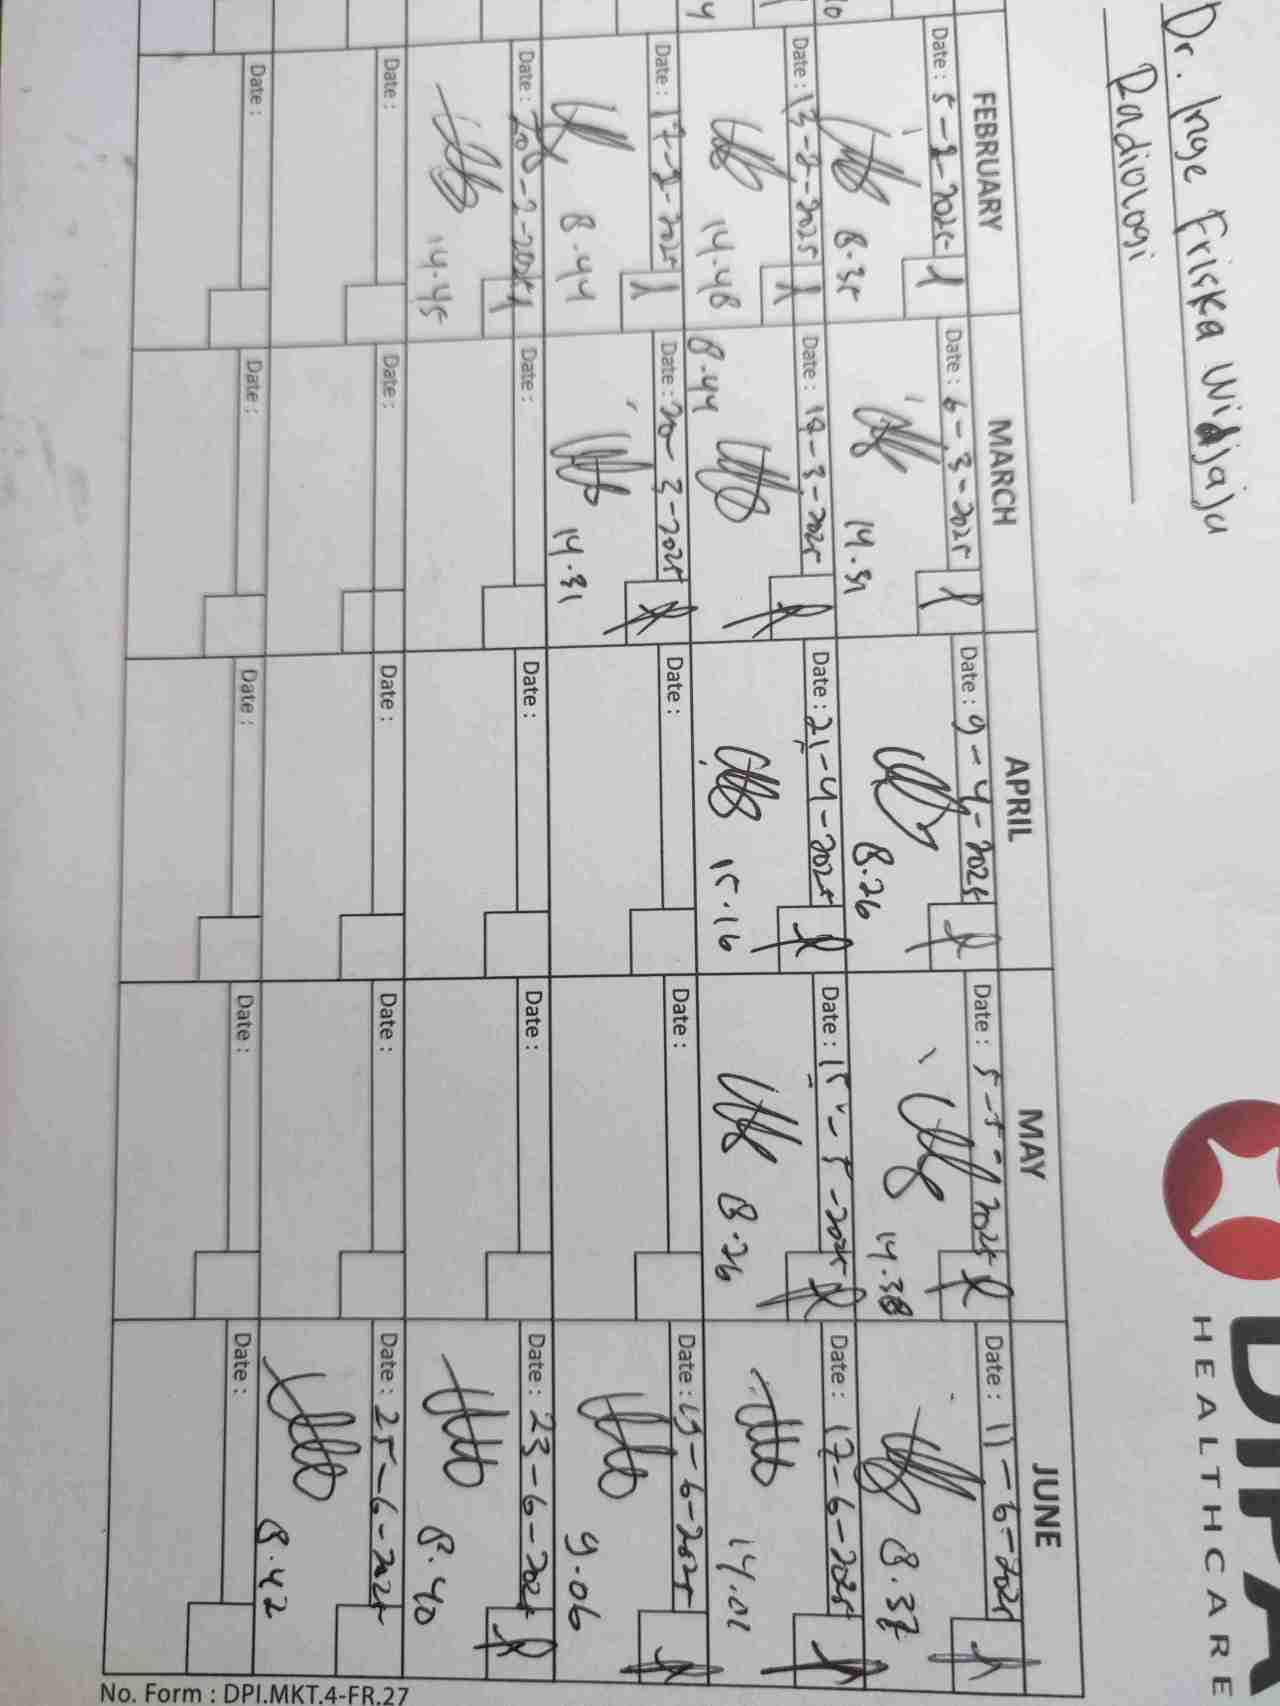 Dr. Inge Friska Widjaja
Radiologi
DIPA
HEALTHCARE
FEBRUARY MARCH APRIL MAY JUNE
Date : 5-2-2025 Date : 6-3-2025 Date : 9-4-2025 Date : 5-5-2025 Date : 11-6-2025
8.35 14.31 8.26 14.38 8.37
Date : 13-2-2025 Date : 19-3-2025 Date : 21-4-2025 Date : 15-5-2025 Date : 17-6-2025
14.48 8.44 15.16 8.26 14.01
Date : 17-2-2025 Date : 20-3-2025 Date : Date : Date : 19-6-2025
8.44 14.31 9.06
Date : Date : Date : Date : Date : 23-6-2025
14.45 8.40
Date : Date : Date : Date : Date : 25-6-2025
8.42
Date : Date : Date : Date : Date :
No. Form : DPI.MKT.4-FR.27